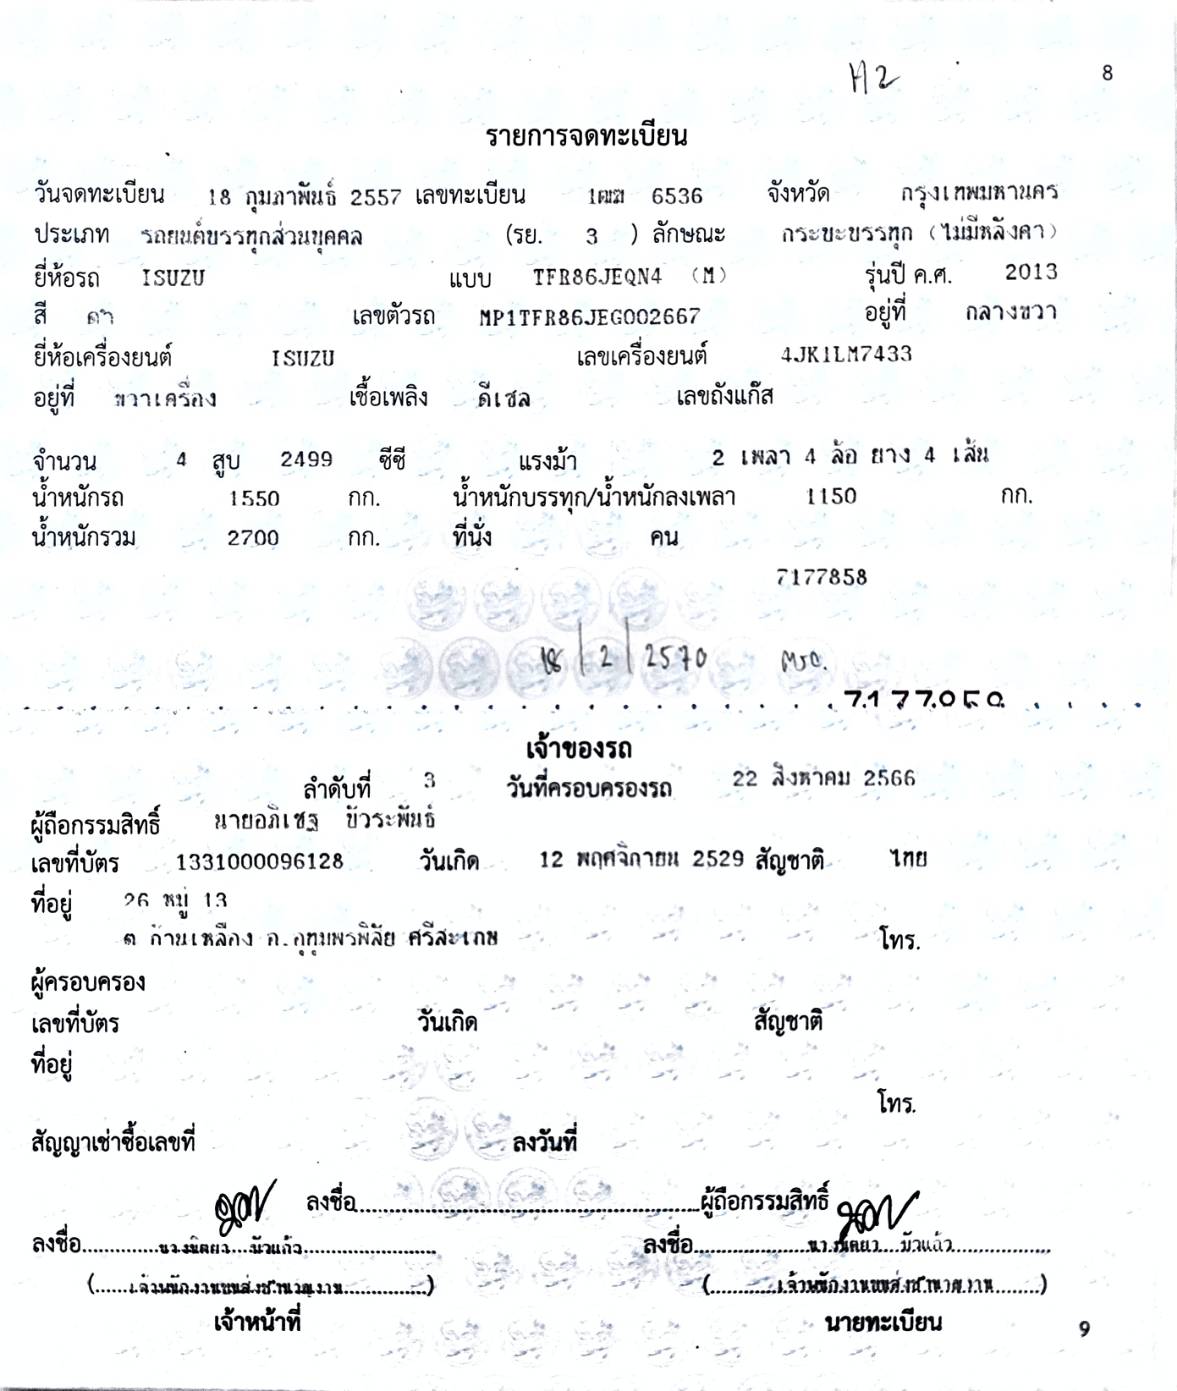 H2 8
รายการจดทะเบียน
วันจดทะเบียน 18 กุมภาพันธ์ 2557 เลขทะเบียน 1ฒฆ 6536 จังหวัด กรุงเทพมหานคร
ประเภท รถยนต์บรรทุกส่วนบุคคล (รย. 3 ) ลักษณะ กระบะบรรทุก (ไม่มีหลังคา)
ยี่ห้อรถ ISUZU แบบ TFR86JEQN4 (M) รุ่นปี ค.ศ. 2013
สี ดำ เลขตัวรถ MP1TFR86JEG002667 อยู่ที่ กลางขวา
ยี่ห้อเครื่องยนต์ ISUZU เลขเครื่องยนต์ 4JK1LM7433
อยู่ที่ ขวาเครื่อง เชื้อเพลิง ดีเซล เลขถังแก๊ส
จำนวน 4 สูบ 2499 ซีซี แรงม้า 2 เพลา 4 ล้อ ยาง 4 เส้น
น้ำหนักรถ 1550 กก. น้ำหนักบรรทุก/น้ำหนักลงเพลา 1150 กก.
น้ำหนักรวม 2700 กก. ที่นั่ง คน
7177858
18/2/2570
เจ้าของรถ
ลำดับที่ 3 วันที่ครอบครองรถ 22 สิงหาคม 2566
ผู้ถือกรรมสิทธิ์ นายอภิเชฐ บัวระพันธ์
เลขที่บัตร 1331000096128 วันเกิด 12 พฤศจิกายน 2529 สัญชาติ ไทย
ที่อยู่ 26 หมู่ 13
ต ก้านเหลือง อ.อุทุมพรพิสัย ศรีสะเกษ โทร.
ผู้ครอบครอง
เลขที่บัตร วันเกิด สัญชาติ
ที่อยู่
โทร.
สัญญาเช่าซื้อเลขที่ ลงวันที่
ลงชื่อ ผู้ถือกรรมสิทธิ์
ลงชื่อ นางนิตยา บัวแก้ว ลงชื่อ นางนิตยา บัวแก้ว
(เจ้าพนักงานขนส่งชำนาญงาน) (เจ้าพนักงานขนส่งชำนาญงาน)
เจ้าหน้าที่ นายทะเบียน 9